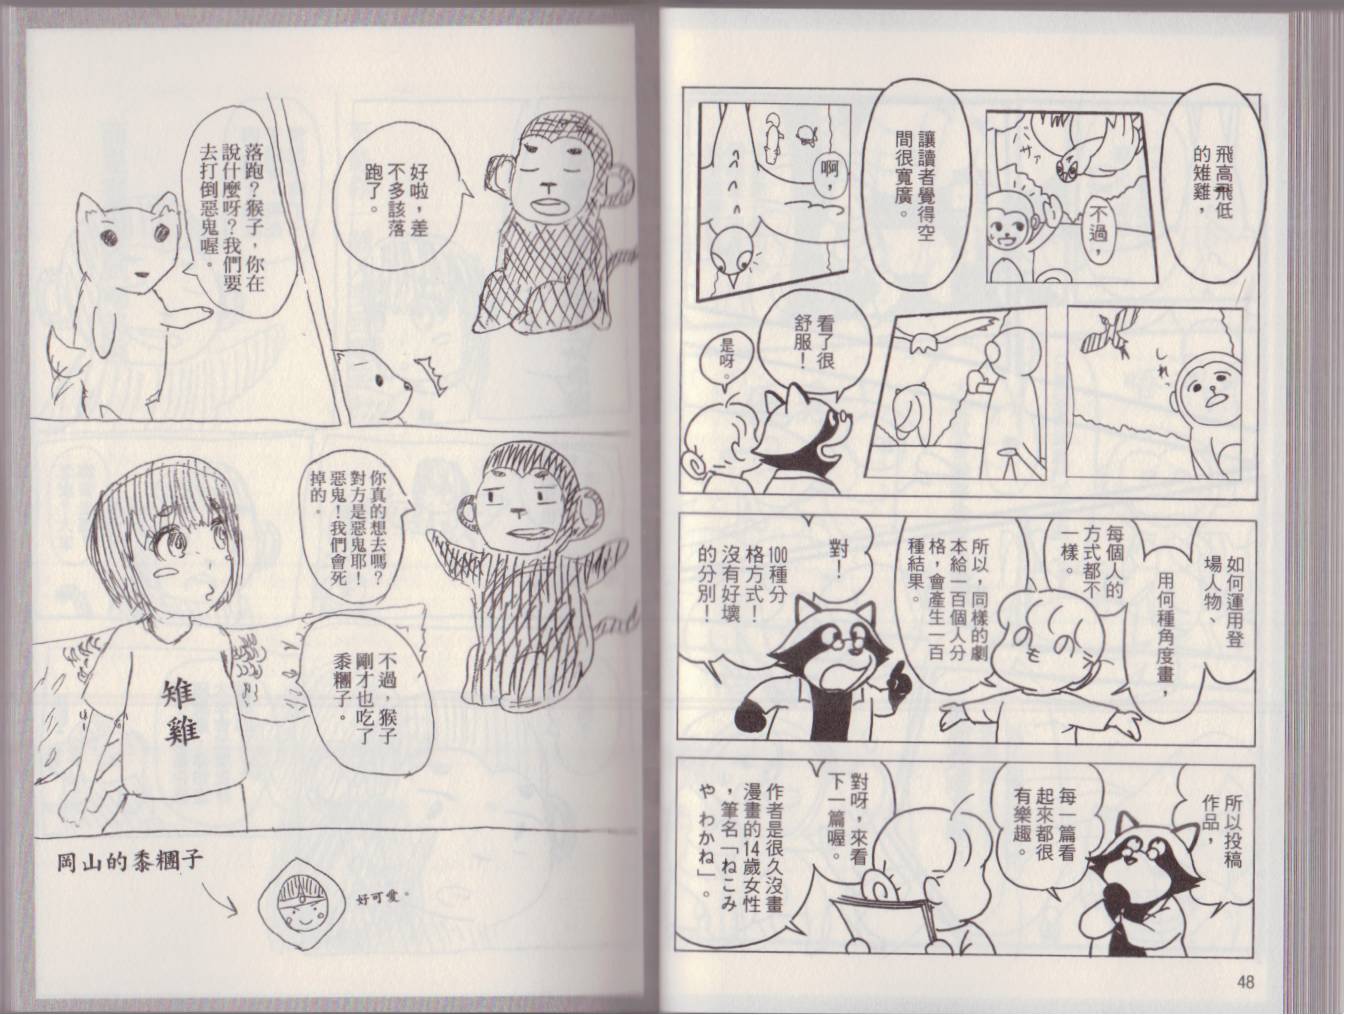 飛高飛低
的雉雞，
不過，
バサァ
讓讀者覺得空
間很寬廣。
啊，
しれっ
看了很
舒服！
是呀。
如何運用登
場人物、
用何種角度畫，
每個人的
方式都不
一樣。
所以，同樣的劇
本給一百個人分
格，會產生一百
種結果。
對！
100種分
格方式！
沒有好壞
的分別！
所以投稿
作品，
每一篇看
起來都很
有樂趣。
對呀，來看
下一篇喔。
作者是很久沒畫
漫畫的14歲女性
，筆名「ねこみ
や わかね」。
48
好啦，差
不多該落
跑了。
落跑？猴子，你在
說什麼呀？我們要
去打倒惡鬼喔。
你真的想去嗎？
對方是惡鬼耶！
惡鬼！我們會死
掉的。
不過，猴子
剛才也吃了
黍糰子。
雉雞
岡山的黍糰子
好可愛。